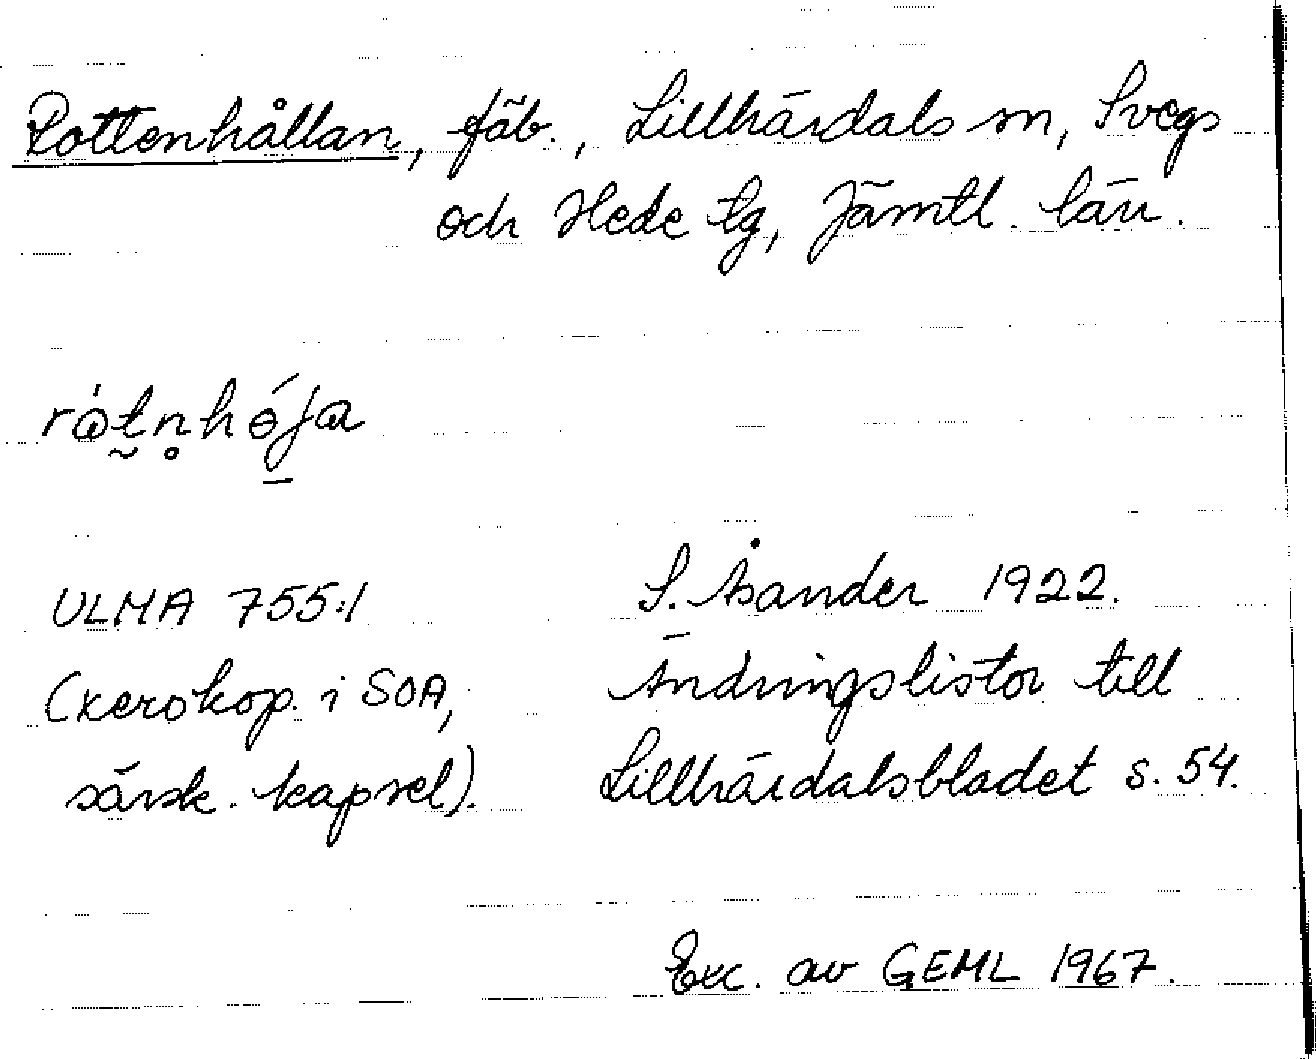 Rottenhållan, fäb., Lillhärdals sn, Svegs
och Hede tg, Jämtl. län.
ULMA 755:1
S. Åsander 1922.
(xerokop. i SOA,
Ändringslistor till
särsk. kapsel).
Lillhärdalsbladet s. 54.
Exc. av GEML 1967.